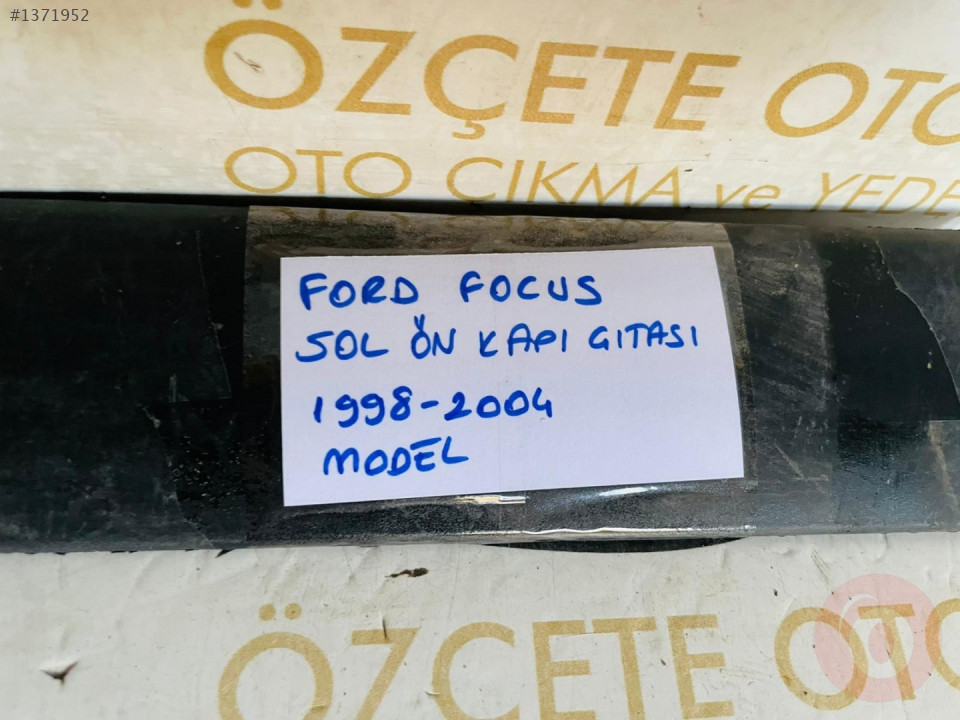 #1371952
ÖZÇETE OTO
OTO ÇIKMA ve YEDE
FORD FOCUS
SOL ÖN KAPI GITASI
1998-2004
MODEL
ÖZÇETE OTO